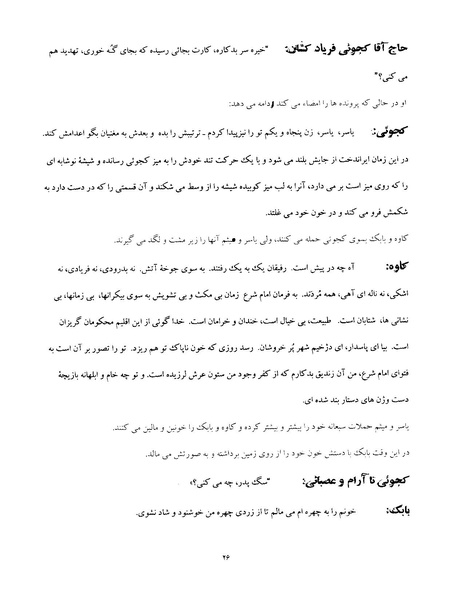 حاج آقا کجوئی فریاد کشان: "خیره سر بدکاره، کارت بجائی رسیده که بجای گُه خوری، تهدید هم
می کنی؟"
او در حالی که پرونده ها را امضاء می کند ادامه می دهد:
کجوئی: یاسر، یاسر، زن پنجاه و یکم تو را نیزپیدا کردم ـ ترتیبش را بده و بعدش به مغنیان بگو اعدامش کند.
در این زمان ایراندخت از جایش بلند می شود و با یک حرکت تند خودش را به میز کجوئی رسانده و شیشۀ نوشابه ای
را که روی میز است بر می دارد، آنرا به لب میز کوبیده شیشه را از وسط می شکند و آن قسمتی را که در دست دارد به
شکمش فرو می کند و در خون خود می غلتد.
کاوه و بابک بسوی کجوئی حمله می کنند، ولی یاسر و میثم آنها را زیر مشت و لگد می گیرند.
کاوه: آه چه در پیش است. رفیقان یک به یک رفتند. به سوی جوخۀ آتش. نه بدرودی، نه فریادی، نه
اشکی، نه ناله ای آهی، همه مُردند. به فرمان امام شرع زمان بی مکث و بی تشویش به سوی بیکرانها، بی زمانها، بی
نشانی ها، شتابان است. طبیعت، بی خیال است، خندان و خرامان است. خدا گوئی از این اقلیم محکومان گریزان
است. بیا ای پاسدار، ای دژخیم شهر پُر خروشان. رسد روزی که خون ناپاک تو هم ریزد. تو را تصور بر آن است به
فتوای امام شرع، من آن زندیق بدکارم که از کفر وجود من ستون عرش لرزیده است. و تو چه خام و ابلهانه بازیچۀ
دست وژن های دستار بند شده ای.
یاسر و میثم حملات سبعانه خود را بیشتر و بیشتر کرده و کاوه و بابک را خونین و مالین می کنند.
در این وقت بابک با دستش خون خود را از روی زمین برداشته و به صورتش می مالد.
کجوئی نا آرام و عصبانی: "سگ پدر، چه می کنی؟"
بابک: خونم را به چهره ام می مالم تا از زردی چهره من خوشنود و شاد نشوی.
۲۶